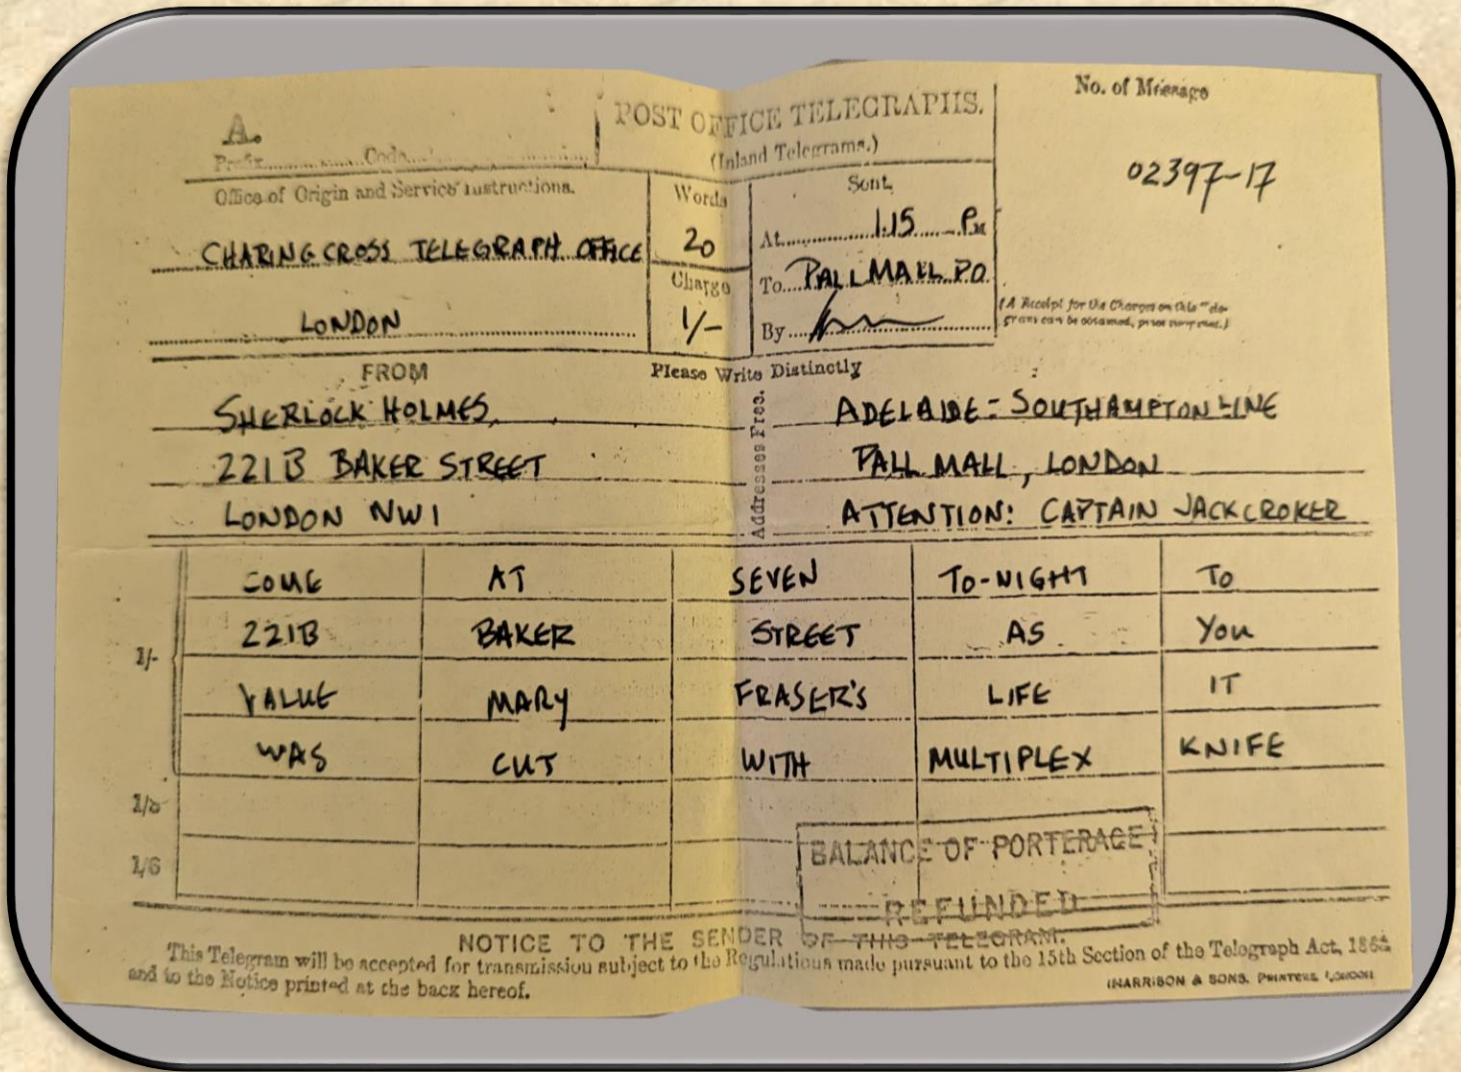 A.
Prefix Code
POST OFFICE TELEGRAPHS.
(Inland Telegrams.)
No. of Message
02397-17
Office of Origin and Service Instructions.
CHARING CROSS TELEGRAPH OFFICE
LONDON
Words
20
Charge
1/-
Sent
At 1.15 PM
To PALL MALL P.O
By
(A Receipt for the Charges on this
can be obtained,
FROM
Please Write Distinctly
SHERLOCK HOLMES,
221B BAKER STREET
LONDON NW1
Addresses Free.
ADELAIDE-SOUTHAMPTON LINE
PALL MALL, LONDON
ATTENTION: CAPTAIN JACK CROKER
1/-
COME AT SEVEN TO-NIGHT TO
221B BAKER STREET AS YOU
VALUE MARY FRASER'S LIFE IT
WAS CUT WITH MULTIPLEX KNIFE
1/6
BALANCE OF PORTERAGE
REFUNDED
NOTICE TO THE SENDER OF THIS TELEGRAM.
This Telegram will be accepted for transmission subject to the Regulations made pursuant to the 15th Section of the Telegraph Act,
and to the Notice printed at the back hereof.
HARRISON & SONS, PRINTERS, LONDON